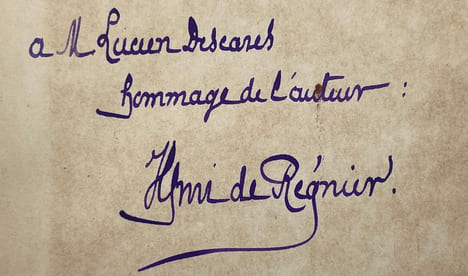 a M Lucien Descaves
hommage de l'auteur :
Henri de Régnier.